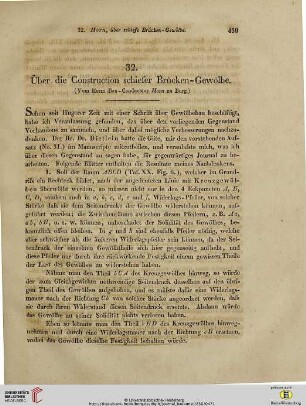 32. Horn, über schiefe Brücken-Gewölbe. 459
32.
Über die Construction schiefer Brücken-Gewölbe.
(Vom Herrn Bau-Conducteur Horn zu Berg.)
Schon seit längerer Zeit mit einer Schrift über Gewölbebau beschäftigt,
habe ich Veranlassung gefunden, das über den vorliegenden Gegenstand
Vorhandene zu sammeln, und über dabei mögliche Verbesserungen nachzu-
denken. Der Hr. Dr. hatte die Güte, mir den vorstehenden Auf-
satz (No. 31.) im Manuscripte mitzutheilen, und veranlaßte mich, was ich
über diesen Gegenstand zu sagen habe, für gegenwärtiges Journal zu be-
arbeiten. Folgende Blätter enthalten die Resultate meines Nachdenkens.
1. Soll der Raum ABCD (Taf. Fig. 4.), welcher im Grund-
riß ein Rechteck bildet, nach der angedeuteten Linie mit Kreuzgewöl-
ben überwölbt werden, so müssen nicht nur in den 4 Eckpuncten A, B,
C, D, sondern auch in Widerlags-Pfeiler, von solcher
Stärke daß sie dem Seitendrucke der Gewölbe widerstehen können, auf-
geführt werden; die Zwischenräume zwischen diesen Pfeilern, z. B.
u. s. w. können, unbeschadet der Solidität des Gewölbes, be-
kanntlich offen bleiben. In g und h sind ebenfalls Pfeiler nöthig, welche
indeß schwächer als die äußeren Widerlagspfeiler sein können, da der Sei-
tendruck der einzelnen Gewölbtheile sich hier gegenseitig aufhebt, und
diese Pfeiler nur durch ihre rückwirkende Festigkeit einem gewissen Theile
der Last des Gewölbes zu widerstehen haben.
Nähme man den Theil des Kreuzgewölbes hinweg, so würde
der zum Gleichgewichte nothwendige Seitendruck desselben auf den übri-
gen Theil des Gewölbes aufgehoben, und es müßte dafür eine Widerlags-
mauer nach der Richtung Cb von solcher Stärke angeordnet werden, daß
sie durch ihren Widerstand diesen Seitendruck ersetzte. Alsdann würde
das Gewölbe an seiner Solidität nichts verloren haben.
Eben so könnte man den Theil des Kreuzgewölbes hinweg-
nehmen und durch eine Widerlagsmauer nach der Richtung ersetzen,
wobei das Gewölbe dieselbe Festigkeit behalten würde.